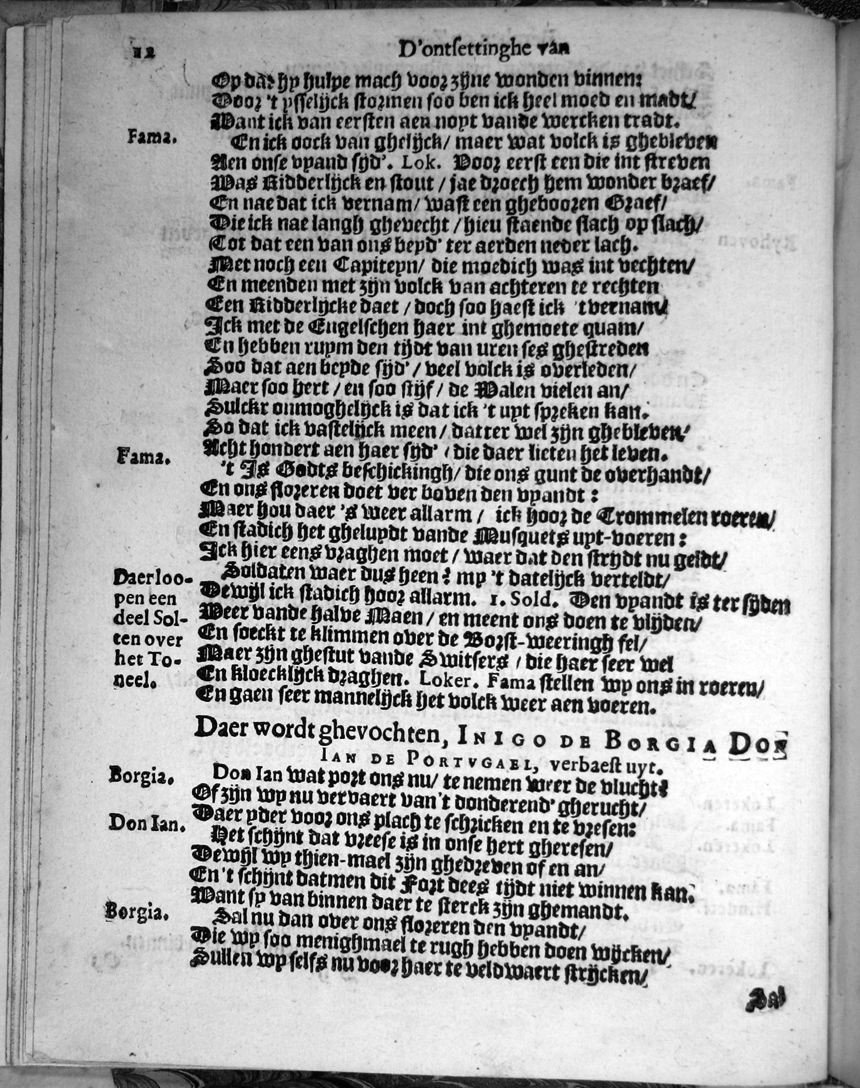 12 D'ontsettinghe van
Op dat hy hulpe mach voor zijne wonden vinnen:
Door 't ysselijck stormen soo ben ick heel moed en madt/
Want ick van eersten aen noyt vande wercken tradt.
Fama. En ick oock van ghelijck/ maer wat volck is ghebleven
Aen onse vyand sijd'. Lok. Voor eerst een die int streven
Was Ridderlijck en stout / jae droech hem wonder braef/
En nae dat ick vernam/ wast een ghebooren Graef/
Die ick nae langh ghevecht / hieu staende slach op slach/
Tot dat een van ons beyd' ter aerden neder lach.
Met noch een Capiteyn/ die moedich was int vechten/
En meenden met zijn volck van achteren te rechten
Een Ridderlijcke daet / doch soo haest ick 't vernam/
Ick met de Engelschen haer int ghemoete quam/
En hebben ruym den tijdt van uren ses ghestreden
Soo dat aen beyde sijd' / veel volck is overleden/
Maer soo hert / en soo stijf / de Walen vielen an/
Sulckx onmoghelijck is dat ick 't uyt spreken kan.
So dat ick vastelijck meen / datter wel zijn ghebleven/
Acht hondert aen haer sijd' / die daer lieten het leven.
Fama. 't Is Godts beschickingh/ die ons gunt de overhandt/
En ons floreren doet ver boven den vyandt:
Maer hou daer 's weer allarm / ick hoor de Trommelen roeren/
En stadich het gheluydt vande Musquets uyt-voeren:
Ick hier eens vraghen moet / waer dat den strijdt nu geldt/
Soldaten waer dus heen? my 't datelijck verteldt/
Daer loo-
pen een
deel Sol-
ten over
het To-
neel.
Dewijl ick stadich hoor allarm. 1. Sold. Den vyandt is ter sijden
Weer vande halve Maen/ en meent ons doen te vlijden/
En soeckt te klimmen over de Borst-weeringh fel/
Maer zijn ghestut vande Switsers / die haer seer wel
En kloecklijck draghen. Loker. Fama stellen wy ons in roeren/
En gaen seer mannelijck het volck weer aen voeren.
Daer wordt ghevochten, INIGO DE BORGIA DON
IAN DE PORTVGAEL, verbaest uyt.
Borgia. Don Ian wat port ons nu/ te nemen weer de vlucht?
Of zijn wy nu vervaert van't donderend' gherucht/
Daer yder voor ons plach te schricken en te vresen:
Don Ian. Het schijnt dat vreese is in onse hert gheresen/
Dewijl wy thien-mael zijn ghedreven of en an/
En 't schijnt datmen dit Fort dees tijdt niet winnen kan.
Want sy van binnen daer te sterck zijn ghemandt.
Borgia. Sal nu dan over ons floreren den vyandt/
Die wy soo menighmael te rugh hebben doen wijcken/
Sullen wy selfs nu voor haer te veldwaert strijcken/
Sal